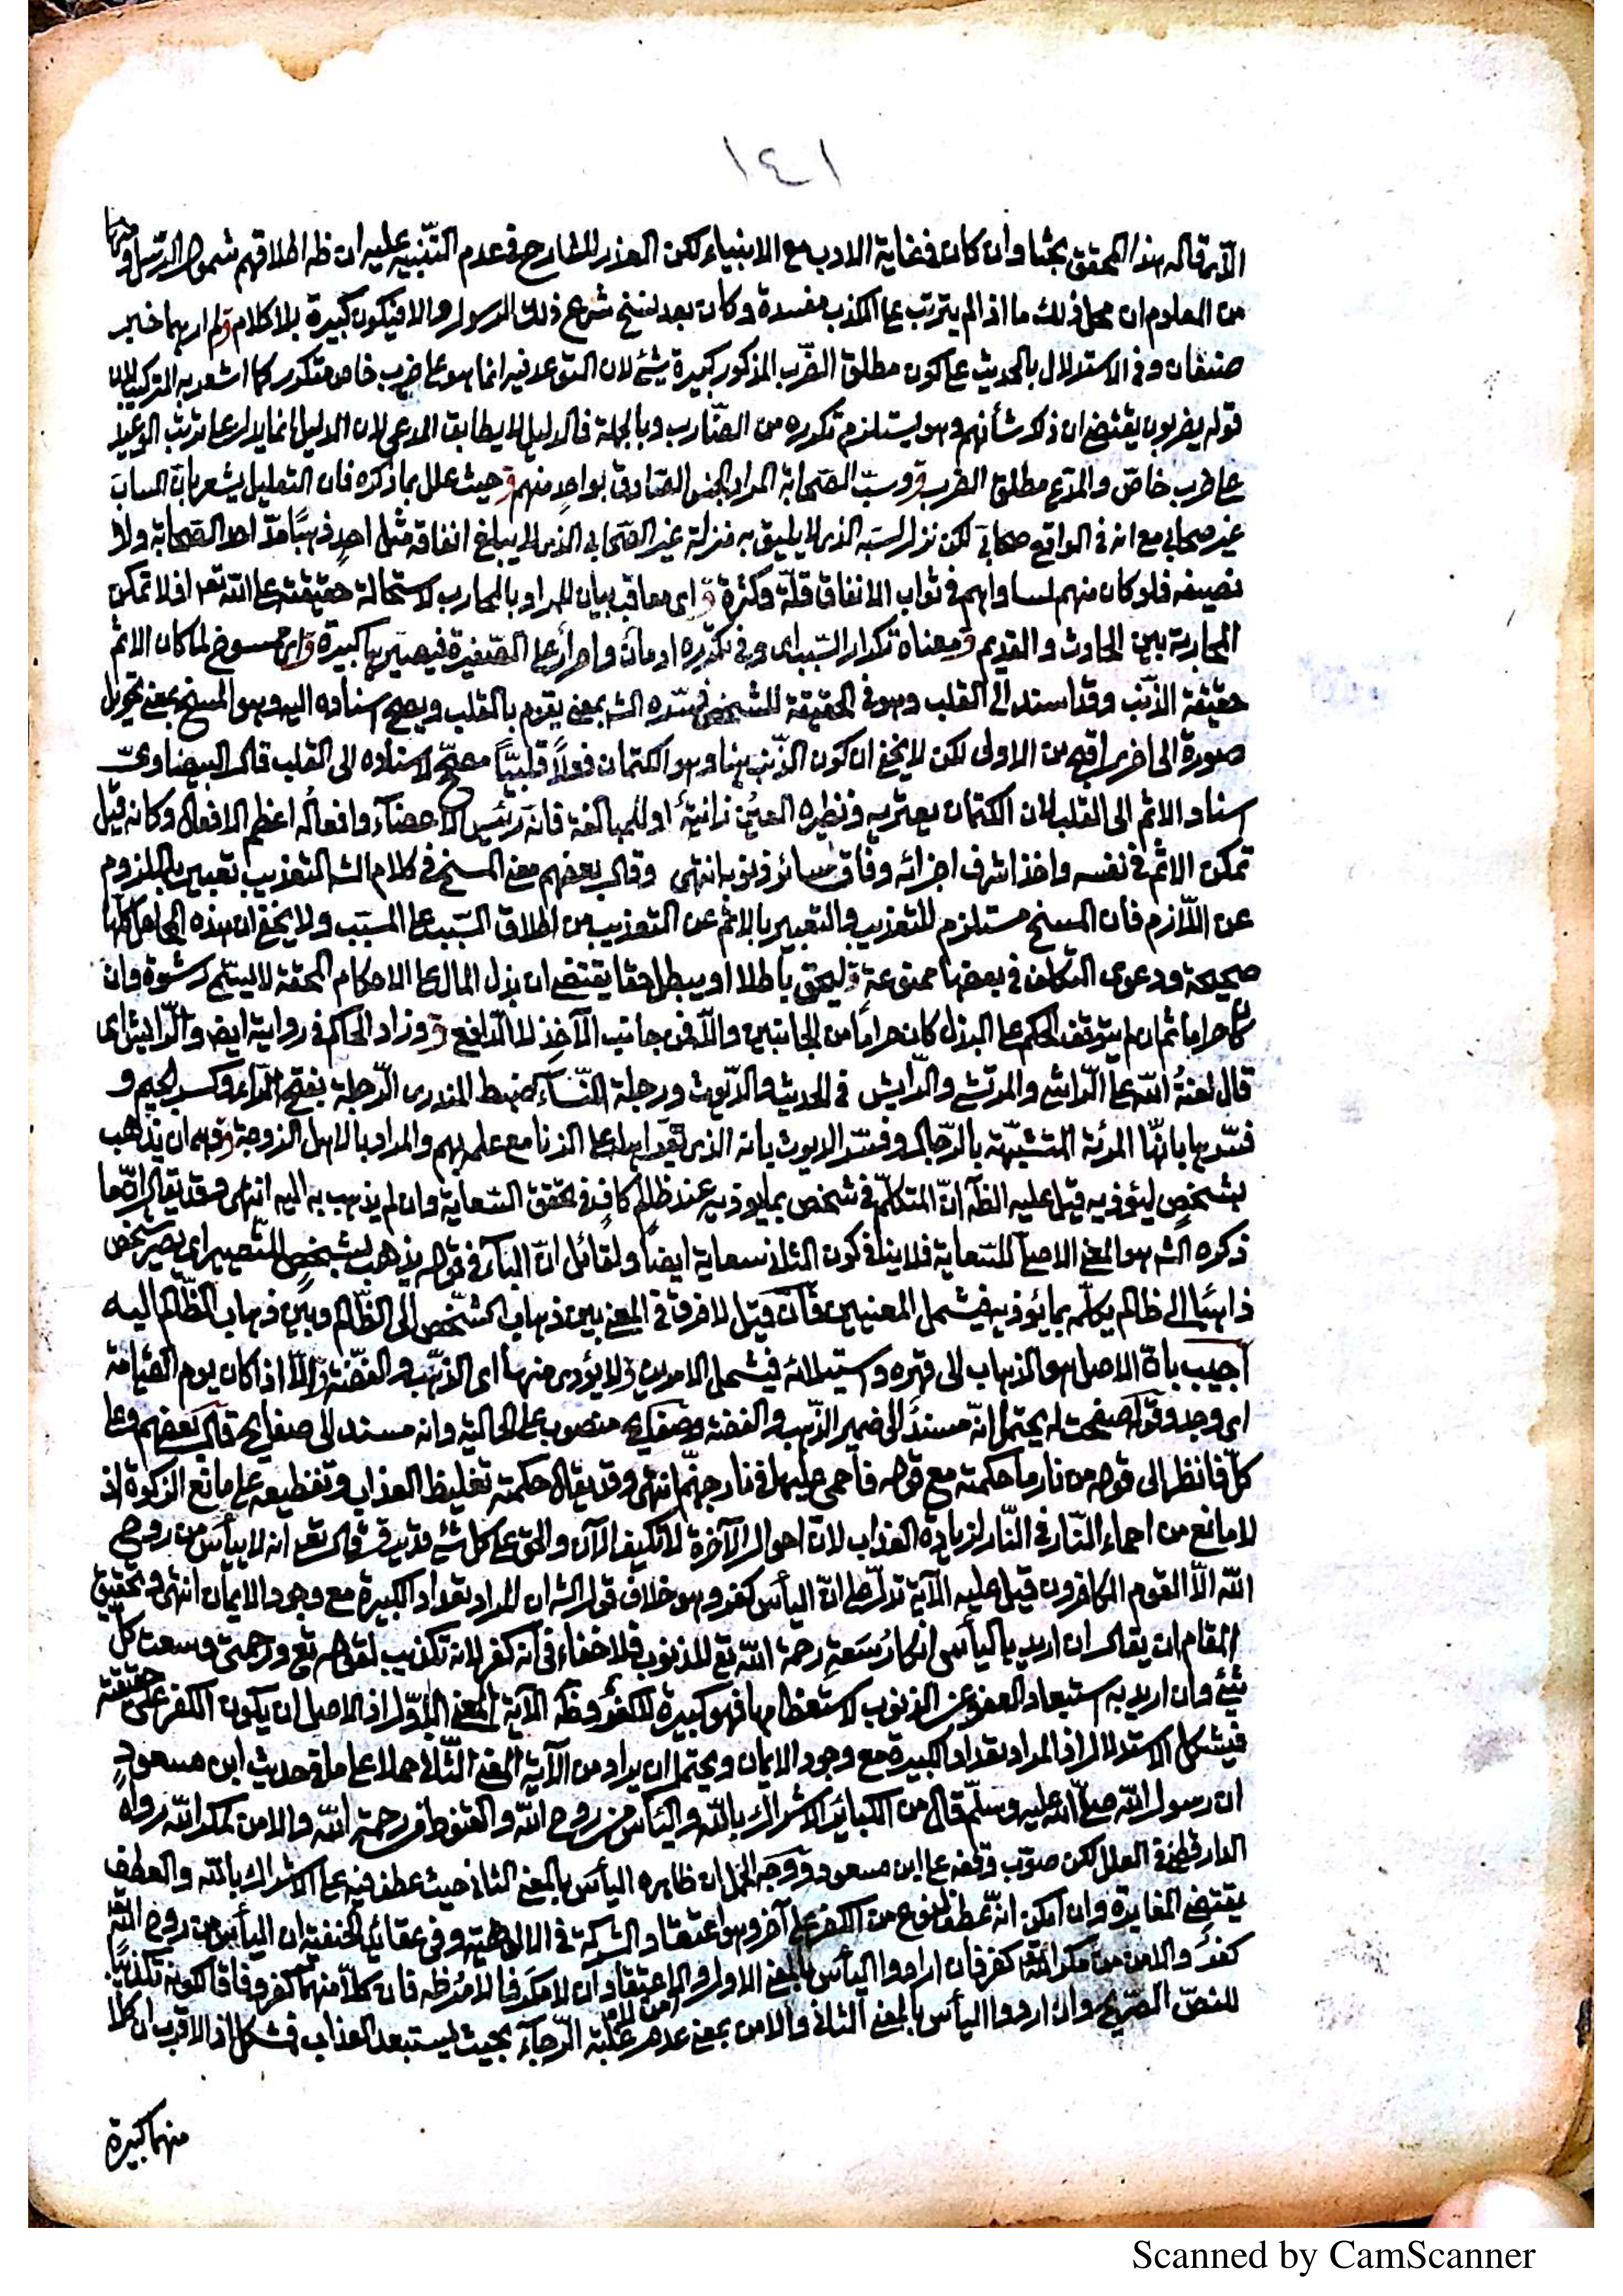 ١٤١
قاله هذا المحقق بحثا وان كان في غاية الادب مع الانبياء لكن العذر للشارح في عدم التنبيه عليه ان ظه اطلاقهم شمول الرسل
من المعلوم ان محل ذلك ما اذا لم يترتب على الكذب مفسدة وكان بعد نسخ شرع ذلك الرسول والا فيكون كبيرة بلا كلام قوله لم ارهما خبر
صنفان وفي الاستدلال بالحديث على كون مطلق الضرب المذكور كبيرة شئ لان التوعد فيه انما هو على ضرب خاص متكرر كما اشعر به التركيب لان
قوله يضربون يقتضي ان ذلك شأنهم وهو يستلزم تكوره من الضارب وبالجملة فالدليل لا يطابق المدعى لان الدليل انما يدل على ترتب الوعيد
على ضرب خاص والمدعى مطلق الضرب قوله وسب الصحابة المراد الجنس الصادق بواحد منهم قوله حيث علل بما ذكره فان التعليل يشعر بان الساب
غير صحابي مع انه في الواقع صحابي لكن نزل لسبه الذي لا يليق به منزلة غير الصحابي الذي لا يبلغ انفاقه مثل احد ذهبًا مدّ احد الصحابة ولا
نصيفه فلو كان منهم لساواهم في ثواب الانفاق قلة وكثرة قوله اي معاقب بيان للمراد بالمحارب لاستحالة حقيقته على الله تعـ اذ لا تمكن
المحاربة بين الحادث والقديم قوله ومعناه تكرار السب اي وفي تكريره ادمان واصرار على الصغيرة فيصير بها كبيرة قوله اي ممسوخ لما كان الاثم
حقيقة الذنب وقد اسند الى القلب وهو في الحقيقة للشخص فسّره الشـ بمعنى يقوم بالقلب ويصح اسناده اليه وهو المسخ بمعنى تحويل
صورة الى اخرى اقبح من الاولى لكن لا يخفى ان كون الذنب هنا وهو الكتمان فعلاً قلبيًا مصحح لاسناده الى القلب قال البيضاوي
اسناد الاثم الى القلب لان الكتمان يعتريه ونظيره العين زانية او للمبالغة فانه رئيس الاعضاء وافعاله اعظم الافعال وكانه قيل
تمكن الاثم في نفسه واخذ اشرف اجزائه وفاق سائر ذنوبه انتهى وقال بعضهم معنى المسخ في كلام الشـ التعذيب تعبير بالملزوم
عن اللازم فان المسخ مستلزم للتعذيب والتعبير بالاثم عن التعذيب من اطلاق السبب على المسبب ولا يخفى ان هذه المحامل كلها
صحيحة ودعوى التكلف في بعضها ممنوعة قوله ليحق باطلا او يبطل حقا يقتضي ان بذل المال على الاحكام المحقة لا يسمى رشوة وان
كان حراما ثم ان لم يتوقف الحكم على البذل كان حراما من الجانبين والا فمن جانب الآخذ لا الدافع قوله وزاد الحاكم في رواية ايضـ والرائش اي
قال لعنة الله على الراشي والمرتشي والرايش في الحديث والديوث ورجلة النساء ضبط المنذري الرجلة بفتح الراء وكسر الجيم و
فسّرها بانها المرئة المتشبهة بالرجال وفسر الديوث بانه الذي يقر اهله على الزنا مع علمه بهم والمراد بالاهل الزوجة قوله وهي ان يذهب
بشخص ليؤذيه قيل عليه الظـ ان المتكلم في شخص بما يوذيه عند ظالم كاف في تحقق السعاية وان لم يذهب به اليه انتهى وقد يقال ان ما
ذكره الشـ هو المعنى الاصلي للسعاية فلا ينافي كون الثاني سعاية ايضًا ولقائل ان الباء في قوله يذهب بشخص للتصيير اي يصير شخص
ذاهبا الى ظالم يكلمه بما يؤذيه فيشمل المعنيين فان قيل لا فرق في المعنى بين ذهاب الشخص الى الظالم وبين ذهاب الظالم اليه
اجيب بان الاصل هو الذهاب الى قهره واستيلائه فيشمل الامرين قوله لا يؤدي منها اي الذهب والفضة قوله الا اذا كان يوم القيامة
اي وجد وقوله صفحت له يحتمل انه مسند الى ضمير الذهب والفضة وصفايح منصوب على الحالية وانه مسند الى صفايح قال بعضهم وعلى
كل فانظر الى قوله من نار ما حكمته مع قوله فاحمي عليها في نار جهنم انتهى وقد يقال حكمته تغليظ العذاب وتفظيعه على مانع الزكوة اذ
لا مانع من احماء النار في النار لزيادة العذاب لان احوال الآخرة لا تكيف الآن والحق على كل شئ قدير قوله قال تعـ انه لا ييأس من روح
الله الا القوم الكافرون قيل عليه الآية تدل على ان اليأس كفر وهو خلاف قول الشـ ان المراد تعداد الكبيرة مع وجود الايمان انتهى وتحقيق
المقام ان يقال ان اريد باليأس انكار سعة رحمة الله تعـ للذنوب فلا خفاء في انه كفر لانه تكذيب لقوله تعـ ورحمتي وسعت كل
شئ وان اريد به استبعاد العفو عن الذنوب لاستعظامها فهو كبيرة لا كفر وظـ الآية المعنى الاول اذ الاصل ان يكون الكفر على حقيقته
فيشكل الاستدلال اذ المراد تعداد الكبيرة مع وجود الايمان ويحتمل ان يراد من الآية المعنى الثاني حملا على ما في حديث ابن مسعود
ان رسول الله صلى الله عليه وسلم قال من الكبائر الاشراك بالله واليأس من روح الله والقنوط من رحمة الله والامن لمكر الله رواه
الدارقطني في العلل لكن صوّب وقفه على ابن مسعود ووجه الحمل ان ظاهره اليأس بالمعنى الثاني حيث عطف فيه على الاشراك بالله والعطف
يقتضي المغايرة وان امكن انه عطف لنوع من الكفر على آخر وهو اعتقاد الشركة في الالوهية وفي عقايد الحنفية ان اليأس من روح الله
كفر والامن من مكر الله كفر فان ارادوا اليأس بالمعنى الاول والامن اعتقاد ان لا مكر فالامر ظـ فان كلا منهما كفر وفاقا لكونه تكذيبًا
للنص الصريح وان ارادوا اليأس بالمعنى الثاني والامن بمعنى غلبة الرجاء بحيث يستبعد العذاب فمشكل اذ الاقرب ان كلا
منهما كبيرة
Scanned by CamScanner